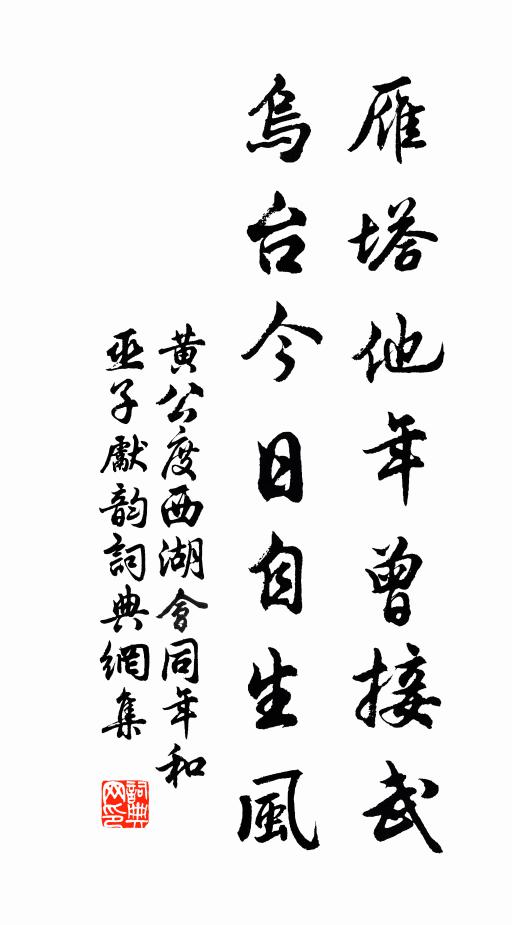 雁塔他年曾接武
烏台今日自生風
黃公度西湖會同年和
巫子獻韵詞典網集
詞典网印